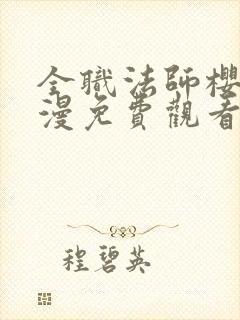 全職法師櫻
漫免費觀看
程碧英